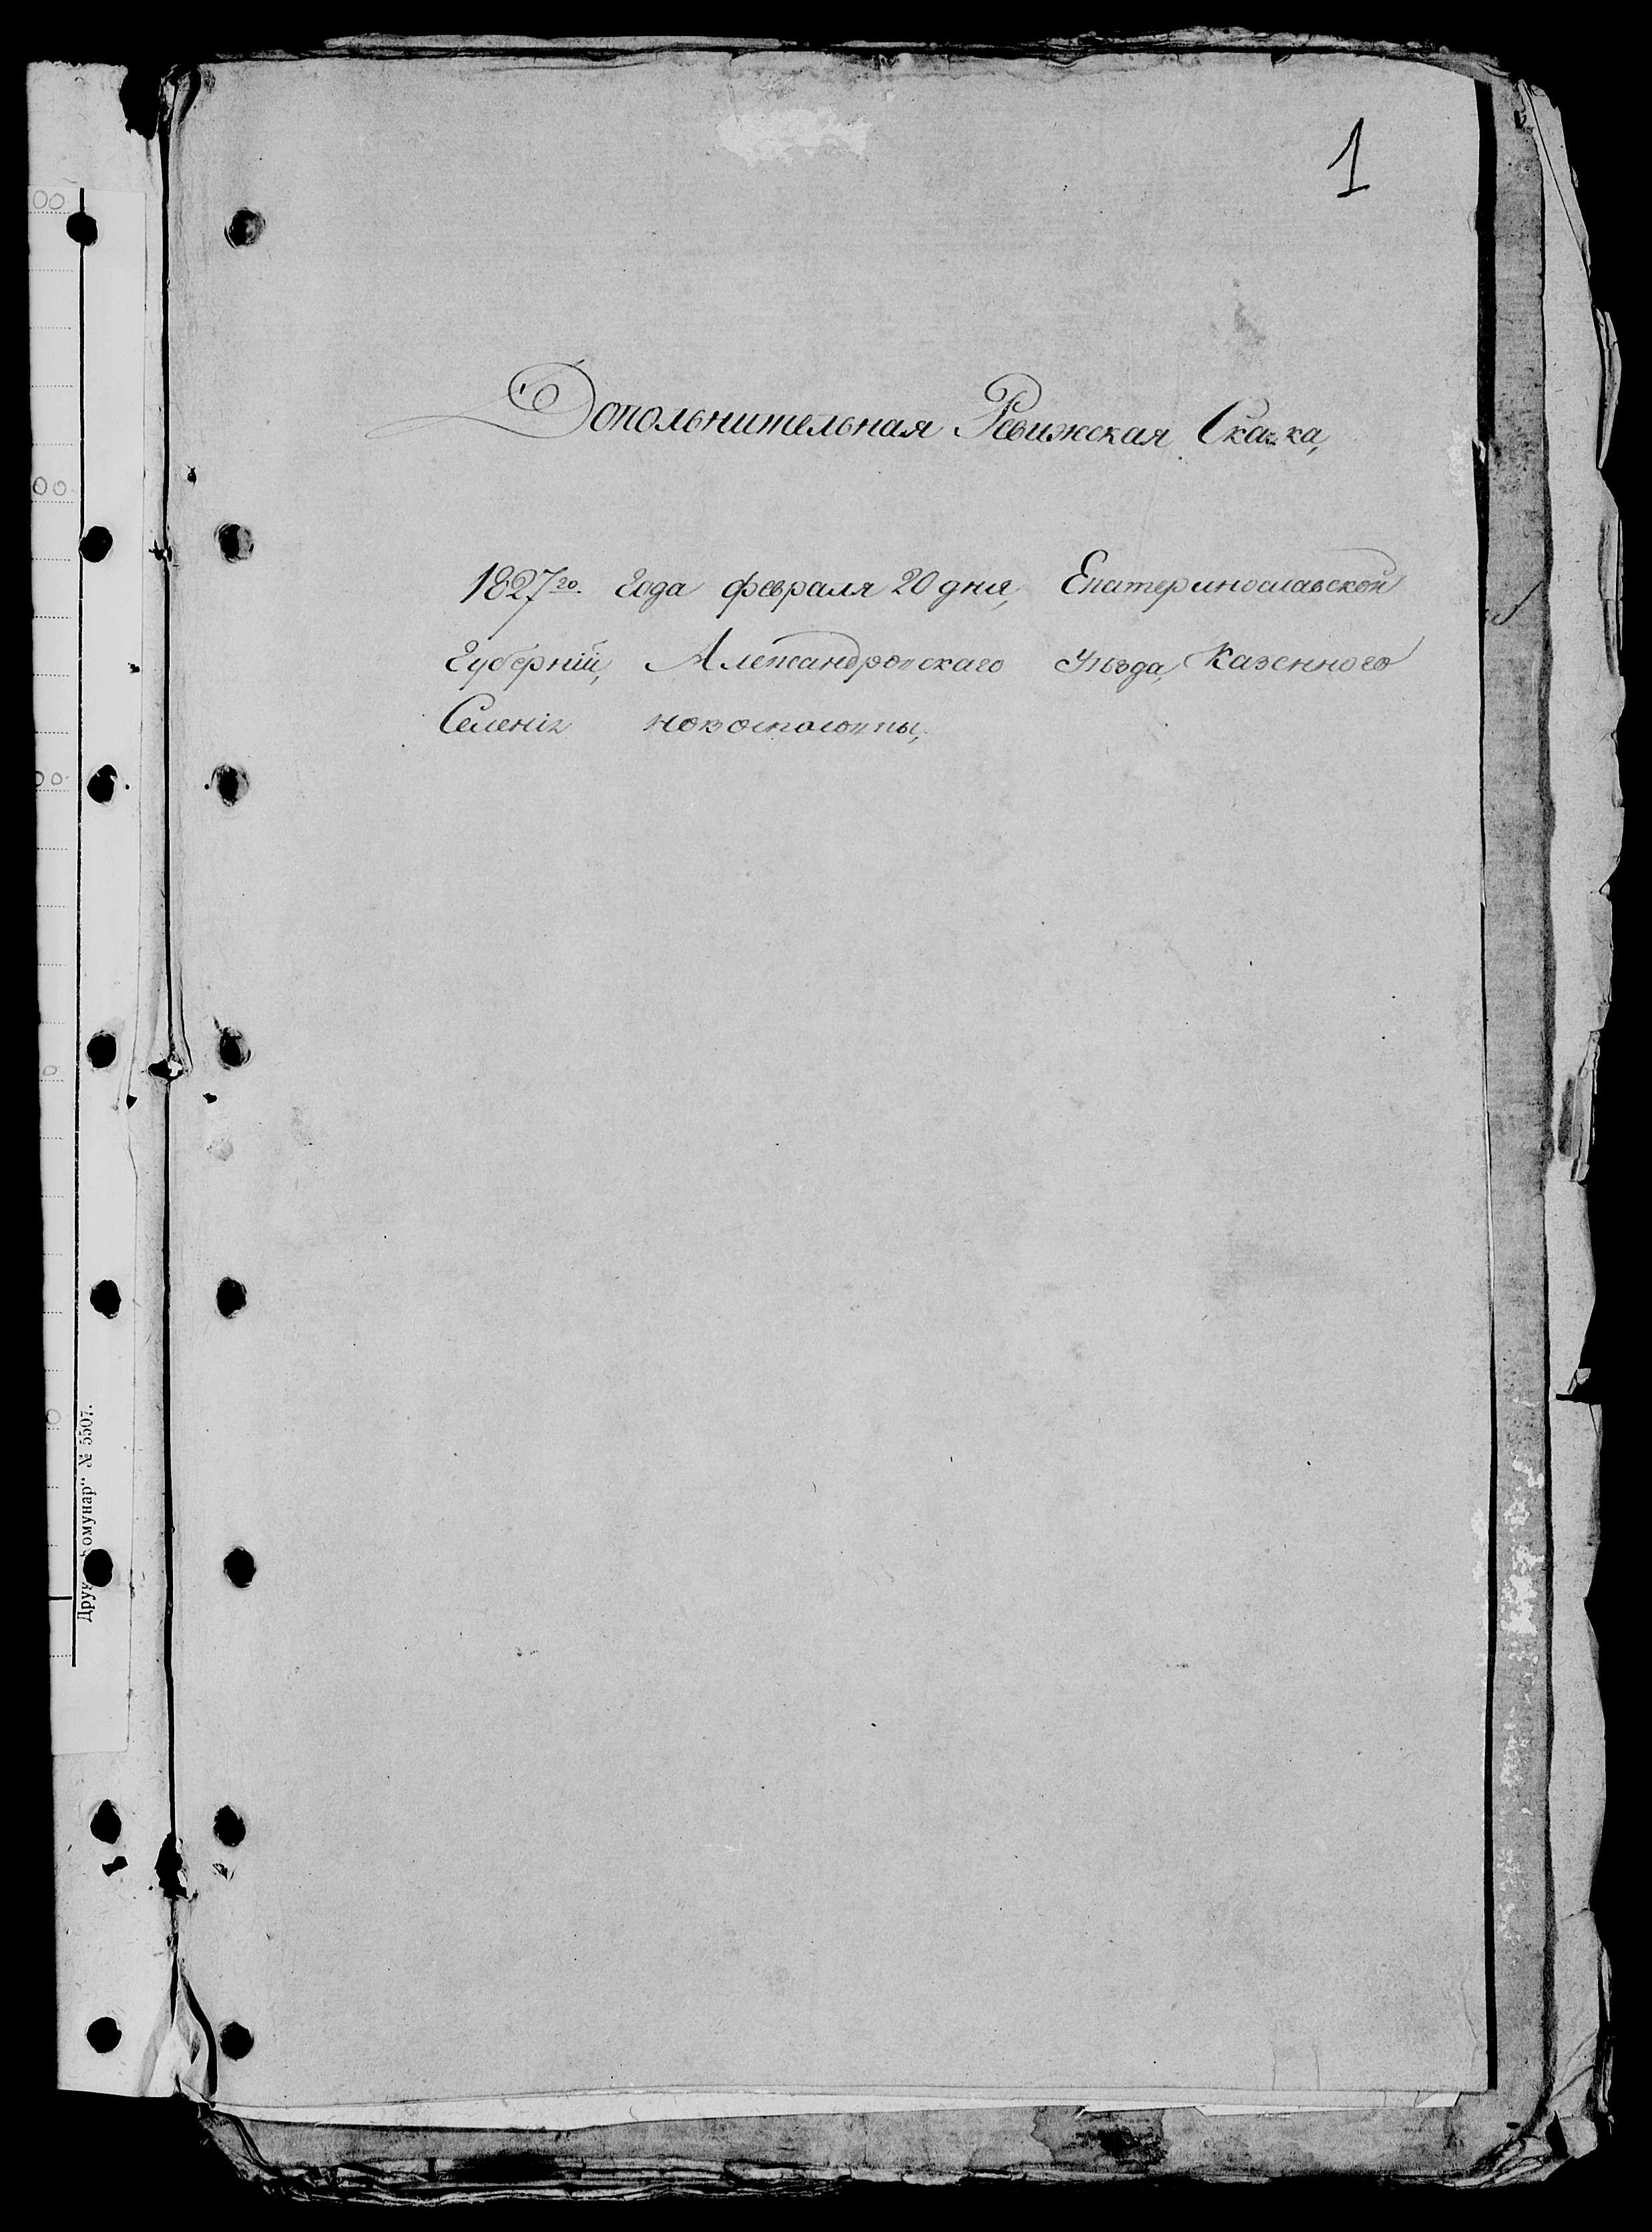 1
Дополнительная Ревижская Сказка,
1827го. Года февраля 20 дня, Екатеринославской
Губерніи, Александровскаго Уѣзда, Казенного
Селенія
Друк. Комунар" № 5507.